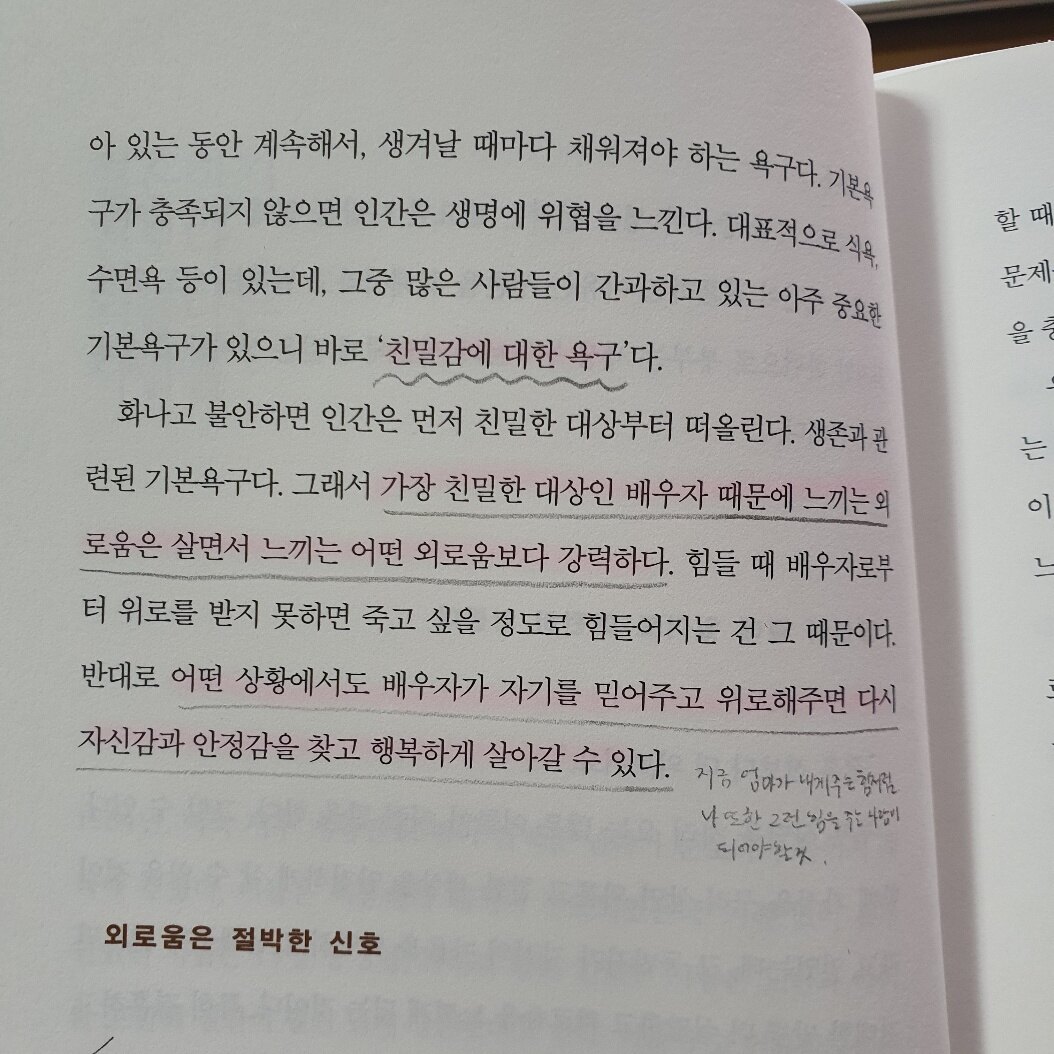 아 있는 동안 계속해서, 생겨날 때마다 채워져야 하는 욕구다. 기본욕
구가 충족되지 않으면 인간은 생명에 위협을 느낀다. 대표적으로 식욕,
수면욕 등이 있는데, 그중 많은 사람들이 간과하고 있는 아주 중요한
기본욕구가 있으니 바로 ‘친밀감에 대한 욕구’다.
화나고 불안하면 인간은 먼저 친밀한 대상부터 떠올린다. 생존과 관
련된 기본욕구다. 그래서 가장 친밀한 대상인 배우자 때문에 느끼는 외
로움은 살면서 느끼는 어떤 외로움보다 강력하다. 힘들 때 배우자로부
터 위로를 받지 못하면 죽고 싶을 정도로 힘들어지는 건 그 때문이다.
반대로 어떤 상황에서도 배우자가 자기를 믿어주고 위로해주면 다시
자신감과 안정감을 찾고 행복하게 살아갈 수 있다.
지금 엄마가 내게 주는 힘처럼
나 또한 그런 힘을 주는 사람이
되어야 할 것.
외로움은 절박한 신호
할 때
문제
을 충
는
이
느